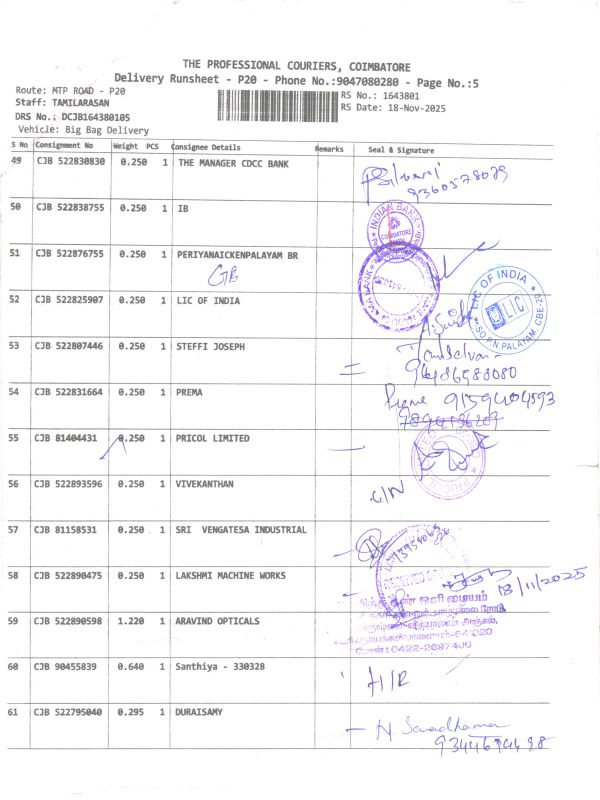 THE PROFESSIONAL COURIERS, COIMBATORE
Delivery Runsheet - P20 - Phone No.:9047080280 - Page No.:5
Route: MTP ROAD - P20
Staff: TAMILARASAN
DRS No.: DCJB164380105
Vehicle: Big Bag Delivery
RS No.: 1643801
RS Date: 18-Nov-2025
S No Consignment No Weight PCS Consignee Details Remarks Seal & Signature
49 CJB 522830830 0.250 1 THE MANAGER CDCC BANK
9360578079
50 CJB 522838755 0.250 1 IB
INDIAN BANK
COIMBATORE
51 CJB 522876755 0.250 1 PERIYANAICKENPALAYAM BR
GB
52 CJB 522825907 0.250 1 LIC OF INDIA
LIC OF INDIA
LIC
SO P.N.PALAYAM, CBE-20
53 CJB 522807446 0.250 1 STEFFI JOSEPH
54 CJB 522831664 0.250 1 PREMA
9159404593
55 CJB 81404431 0.250 1 PRICOL LIMITED
56 CJB 522893596 0.250 1 VIVEKANTHAN
57 CJB 81158531 0.250 1 SRI VENGATESA INDUSTRIAL
58 CJB 522890475 0.250 1 LAKSHMI MACHINE WORKS
18/11/2025
59 CJB 522890598 1.220 1 ARAVIND OPTICALS
0422-2697400
60 CJB 90455839 0.640 1 Santhiya - 330328
H/R
61 CJB 522795040 0.295 1 DURAISAMY